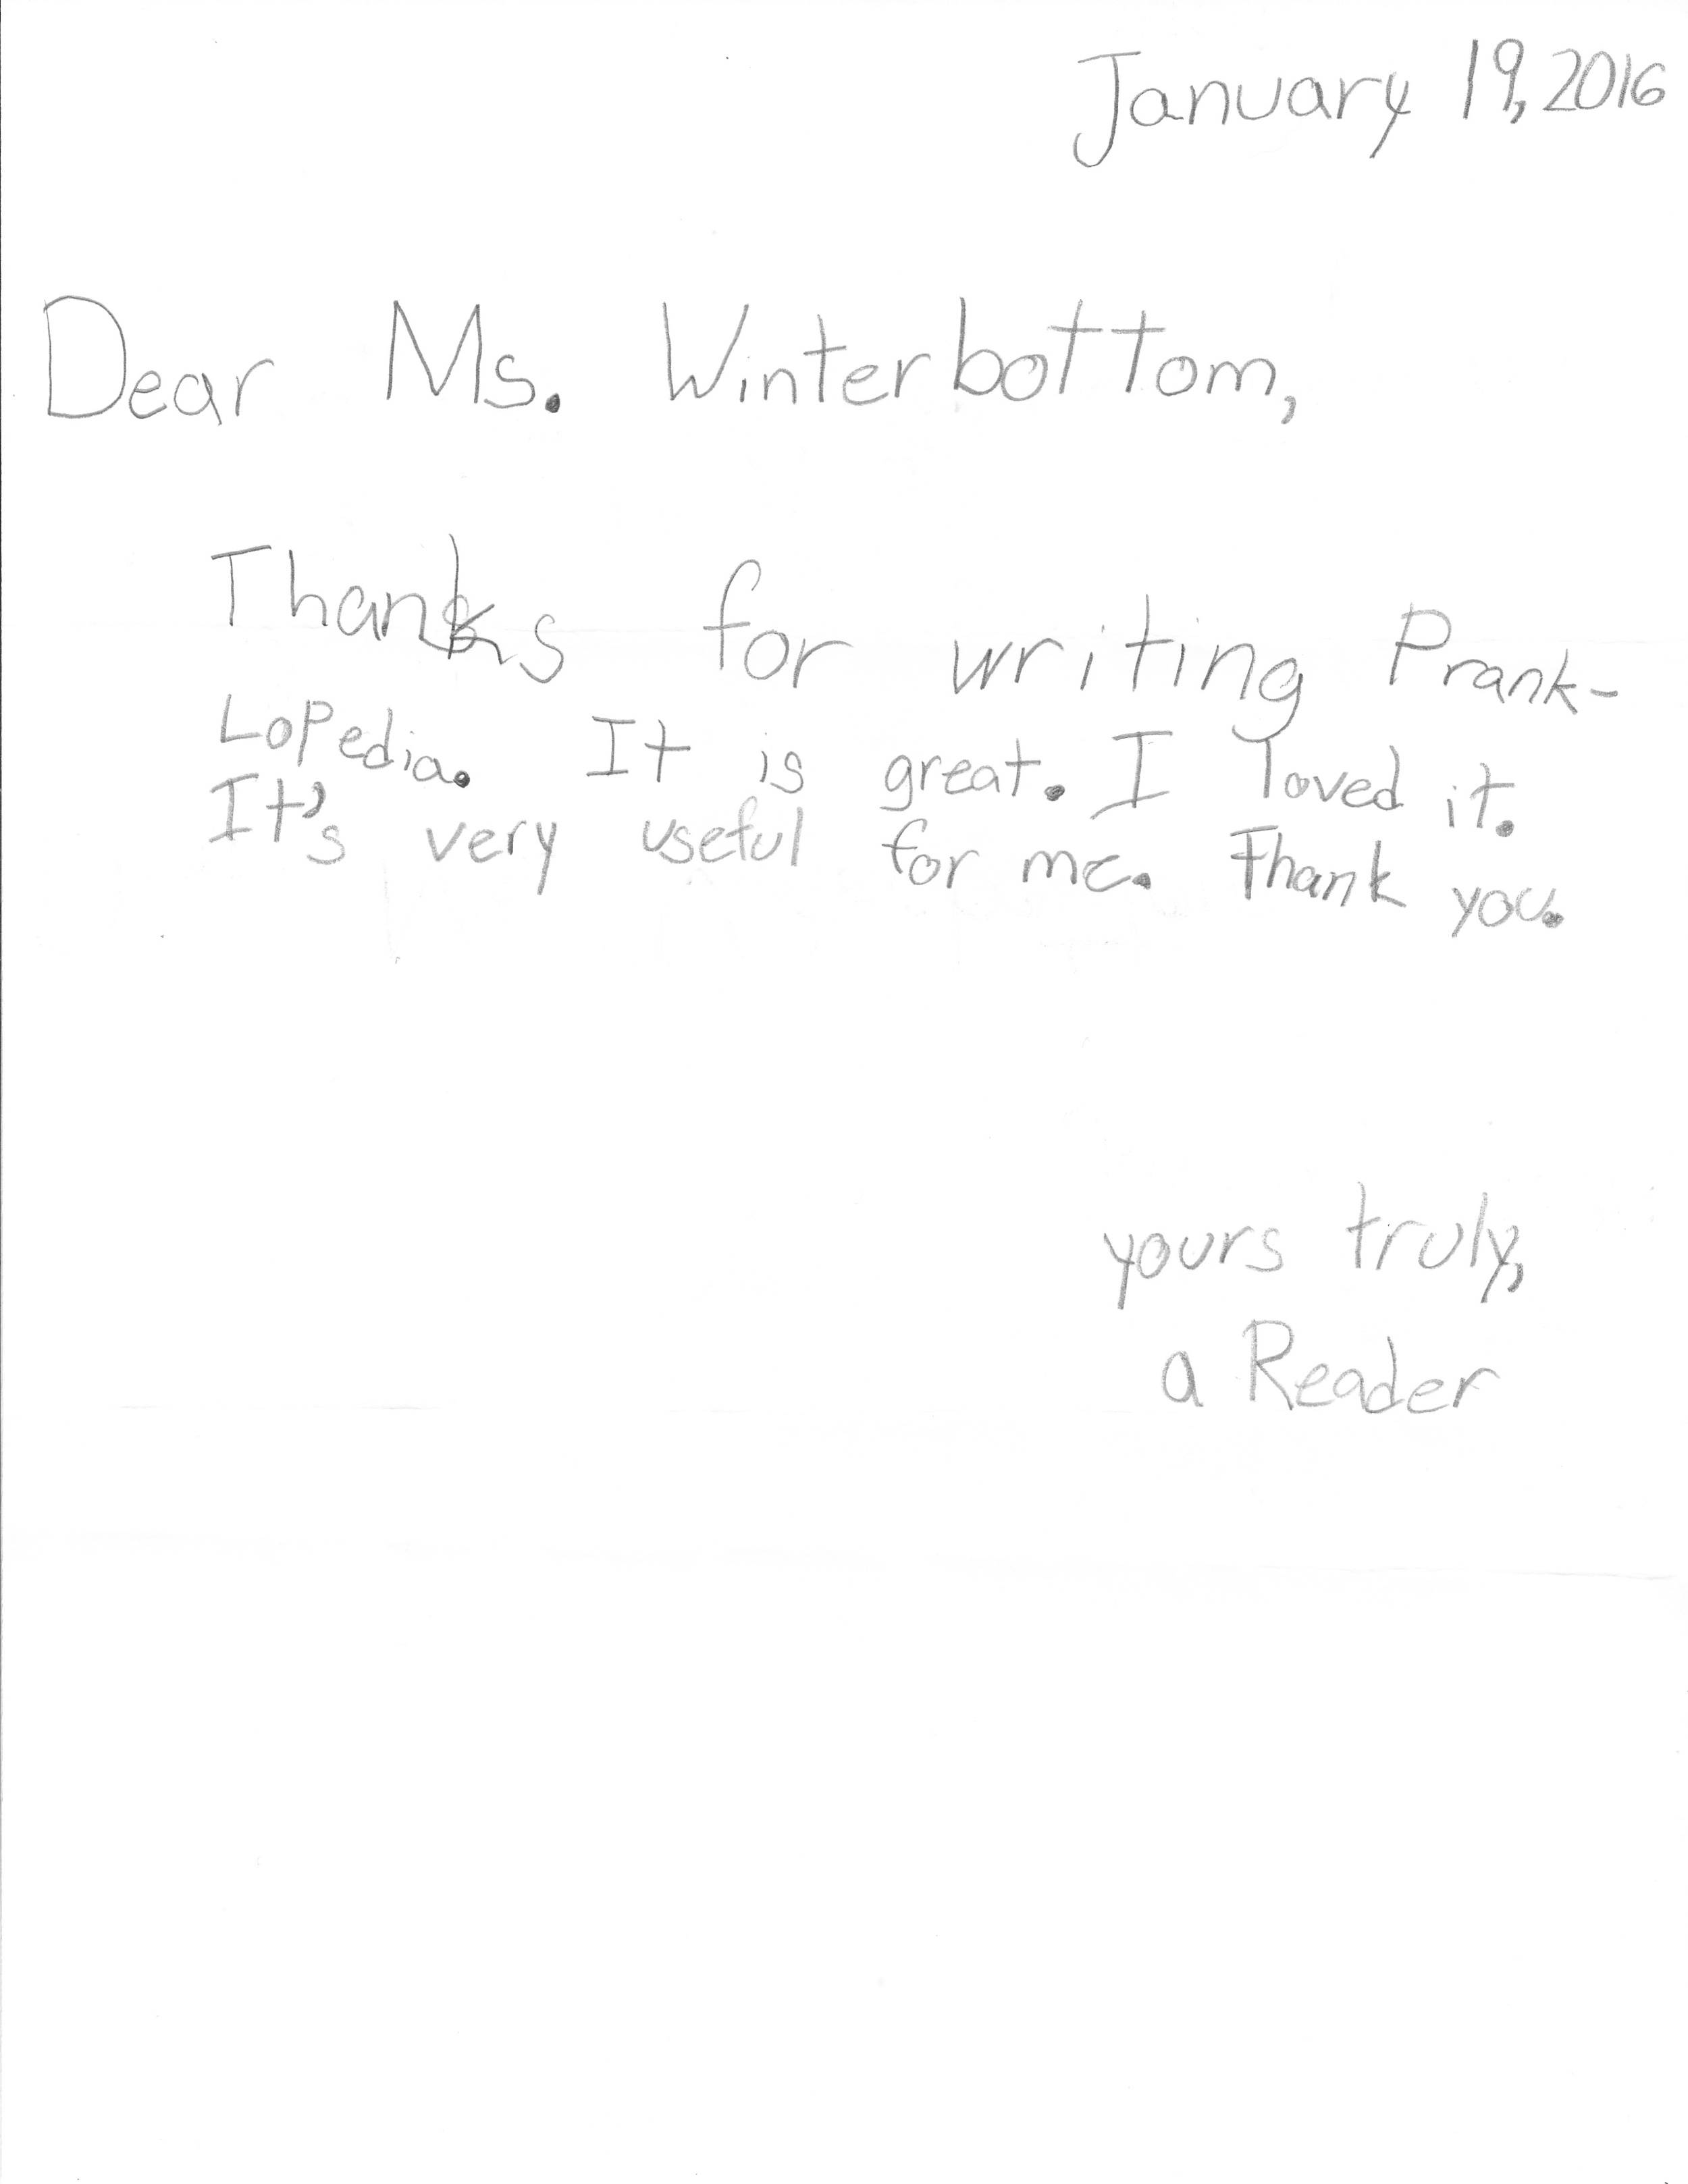 January 19, 2016
Dear Ms. Winterbottom,
Thanks for writing Prank-
LoPedia. It is great. I loved it.
It's very useful for me. Thank you.
yours truly,
a Reader